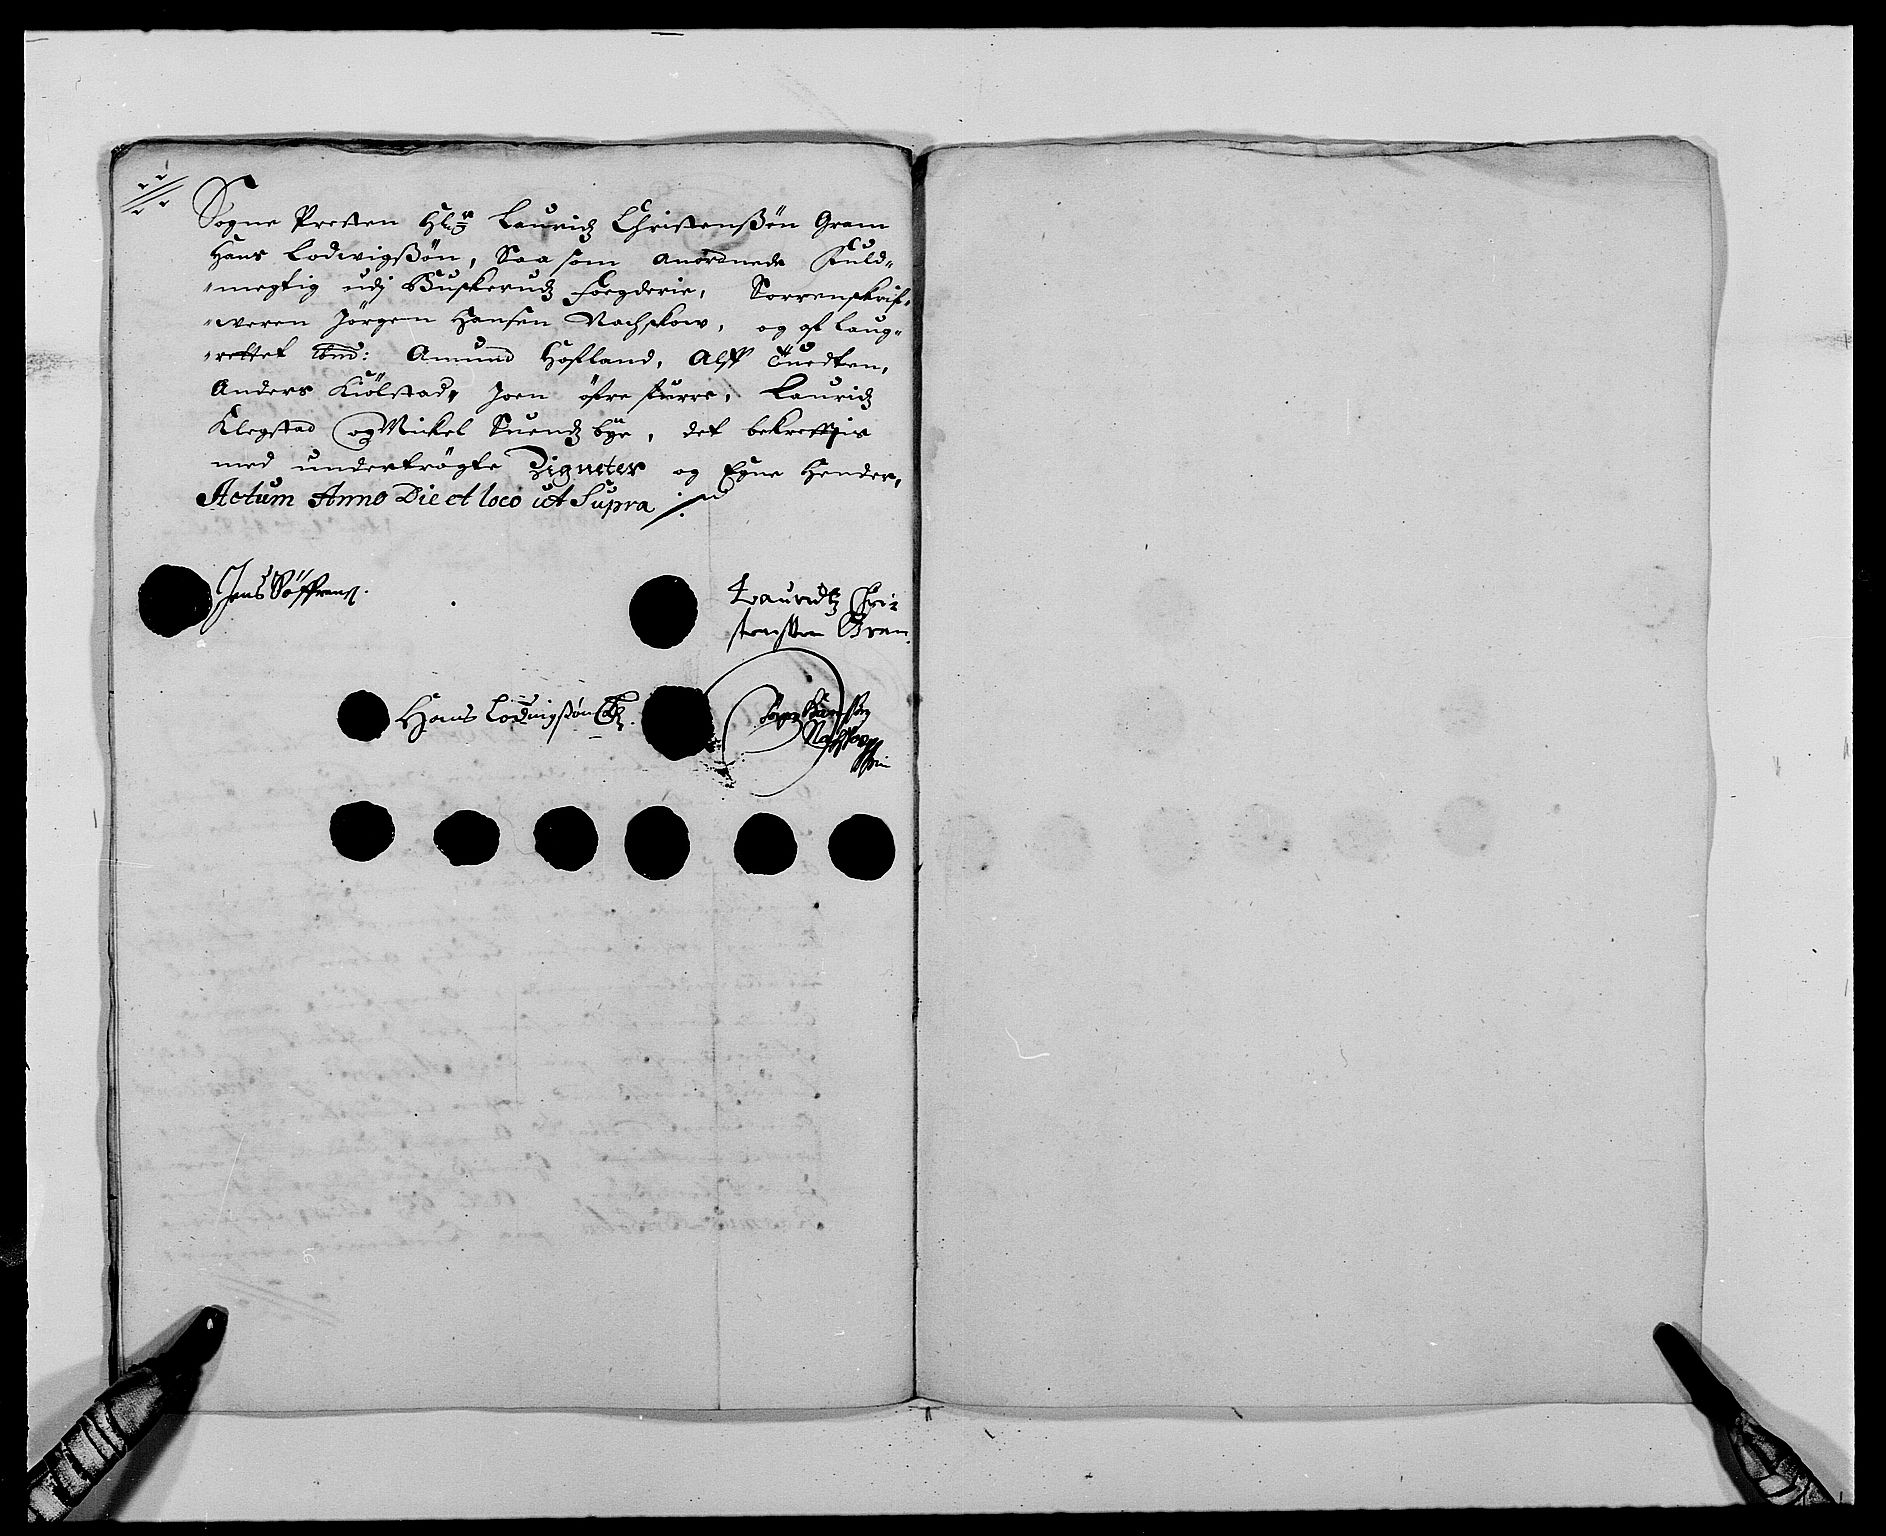 Sogne Presten Hr: Lauridz Christensßön Gram
Hans Lodwigßön, Saa som anordnede Fuld-
-megtig udj Buskerudz Foegderie, Sorrenskrif-
-weren Jörgen Hansen Nachskow, og af Laug-
-rettet Amund Hofland, Alff Tuedten,
Anders Kiölstad, Joen öfre furre, Lauridz
Klegstad og Mickel Suendzbye, det bekrefftis
med undertrögte Zigneter og Egne Hender,
Actum Anno Die et loco ut Supra
Jens Söffrens.
Lauridtz Chri-
stensßen Gram
Hans Lodwigßön
Jörgen Hansßön
Nachskow